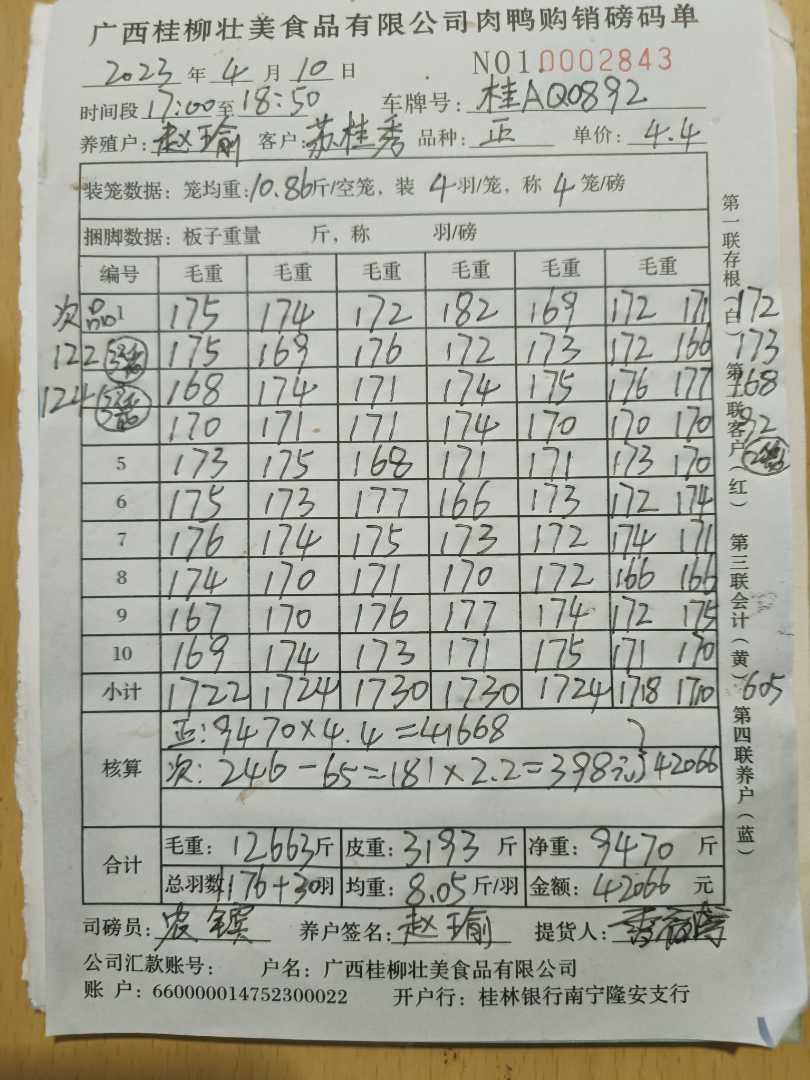 广西桂柳壮美食品有限公司肉鸭购销磅码单
2023 年 4 月 10 日 NO1.0002843
时间段 17:00 至 18:50 车牌号: 桂AQ0892
养殖户: 赵瑜 客户: 苏桂秀 品种: 正 单价: 4.4
装笼数据: 笼均重: 10.86 斤/空笼, 装 4 羽/笼, 称 4 笼/磅
捆脚数据: 板子重量 斤, 称 羽/磅
编号 毛重 毛重 毛重 毛重 毛重 毛重
次品 1 175 174 172 182 169 172 171 172
122 175 169 176 172 173 172 166 173
124 168 174 171 174 175 176 177 168
170 171 171 174 170 170 170 92
5 173 175 168 171 171 173 170
6 175 173 177 166 173 172 174
7 176 174 175 173 172 174 171
8 174 170 171 170 172 166 166
9 167 170 176 177 174 172 175
10 169 174 173 171 175 171 170
小计 1722 1724 1730 1730 1724 1718 1710 605
核算 正: 9470×4.4=41668
次: 246-65=181×2.2=398元 42066
合计 毛重: 12663 斤 皮重: 3193 斤 净重: 9470 斤
总羽数 1176+30 羽 均重: 8.05 斤/羽 金额: 42066 元
司磅员: 农镔 养户签名: 赵瑜 提货人:
公司汇款账号: 户名: 广西桂柳壮美食品有限公司
账 户: 660000014752300022 开户行: 桂林银行南宁隆安支行
第一联存根(白) 第二联客户(红) 第三联会计(黄) 第四联养户(蓝)